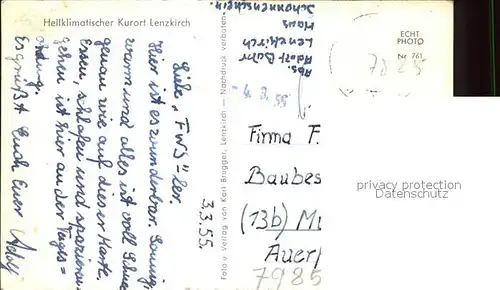 Heilklimatischer Kurort Lenzkirch
Liebe „FWS"=ler.
Hier ist es wunderbar. Sonnig,
warm und alles ist voll Schnee
genau wie auf dieser Karte.
Essen, schlafen und spazieren
gehen ist hier an der Tages=
ordnung.
Es grüßt Euch Euer Adolf
3.3.55.
Foto u. Verlag von Karl Brugger, Lenzkirch — Nachdruck verboten
Abs.
Adolf
Lenzkirch
Haus
Schönenschein.
ECHT
PHOTO
Nr. 761
Firma F.
Baubes
(13b) Mü
Auer
7985
privacy protection
Datenschutz